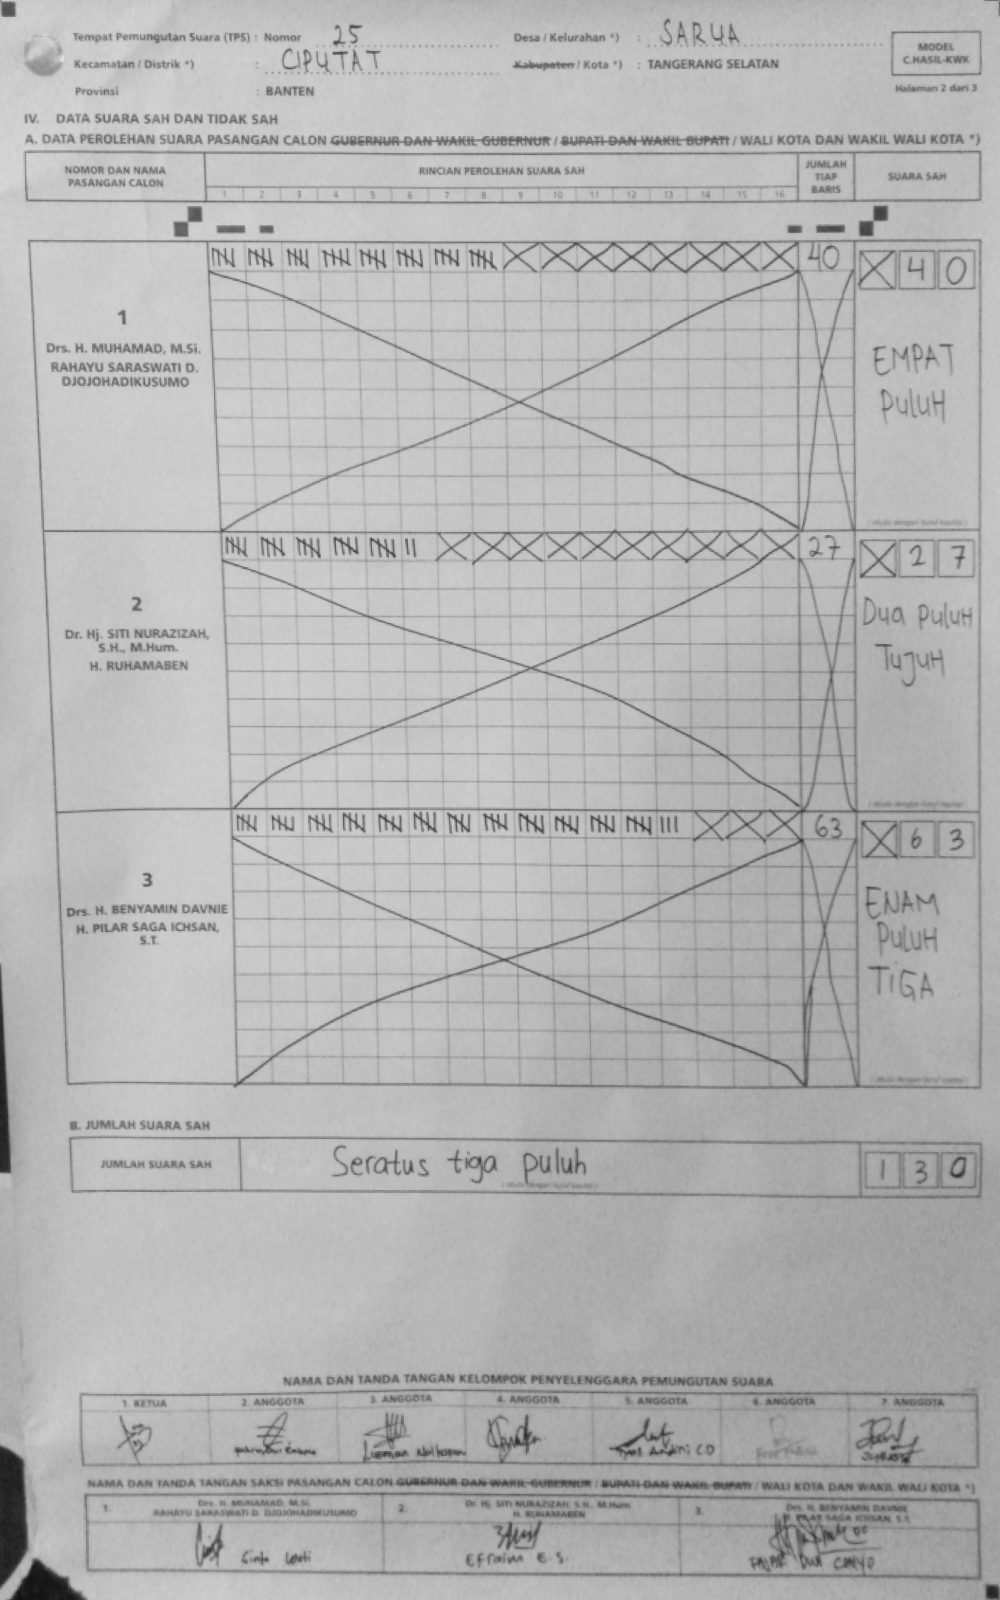 Tempat Pemungutan Suara (TPS) : Nomor 25 Desa / Kelurahan *) : SARUA
Kecamatan / Distrik *) : CIPUTAT Kabupaten / Kota *) : TANGERANG SELATAN
Provinsi : BANTEN
MODEL
C.HASIL-KWK
Halaman 2 dari 3
IV. DATA SUARA SAH DAN TIDAK SAH
A. DATA PEROLEHAN SUARA PASANGAN CALON GUBERNUR DAN WAKIL GUBERNUR / BUPATI DAN WAKIL BUPATI / WALI KOTA DAN WAKIL WALI KOTA *)
NOMOR DAN NAMA
PASANGAN CALON
RINCIAN PEROLEHAN SUARA SAH
1 2 3 4 5 6 7 8 9 10 11 12 13 14 15 16
JUMLAH
TIAP
BARIS
SUARA SAH
1
Drs. H. MUHAMAD, M.Si.
RAHAYU SARASWATI D.
DJOJOHADIKUSUMO
40
X 4 0
EMPAT
PULUH
( ditulis dengan huruf kapital )
2
Dr. Hj. SITI NURAZIZAH,
S.H., M.Hum.
H. RUHAMABEN
27
X 2 7
Dua puluh
Tujuh
( ditulis dengan huruf kapital )
3
Drs. H. BENYAMIN DAVNIE
H. PILAR SAGA ICHSAN,
S.T.
63
X 6 3
ENAM
PULUH
TIGA
( ditulis dengan huruf kapital )
B. JUMLAH SUARA SAH
JUMLAH SUARA SAH
Seratus tiga puluh
( ditulis dengan huruf kapital )
1 3 0
NAMA DAN TANDA TANGAN KELOMPOK PENYELENGGARA PEMUNGUTAN SUARA
1. KETUA 2. ANGGOTA 3. ANGGOTA 4. ANGGOTA 5. ANGGOTA 6. ANGGOTA 7. ANGGOTA
NAMA DAN TANDA TANGAN SAKSI PASANGAN CALON GUBERNUR DAN WAKIL GUBERNUR / BUPATI DAN WAKIL BUPATI / WALI KOTA DAN WAKIL WALI KOTA *)
1. Drs. H. MUHAMAD, M.Si.
RAHAYU SARASWATI D. DJOJOHADIKUSUMO
2. Dr. Hj. SITI NURAZIZAH, S.H., M.Hum.
H. RUHAMABEN
3. Drs. H. BENYAMIN DAVNIE
H. PILAR SAGA ICHSAN, S.T.
Efraim E.S.